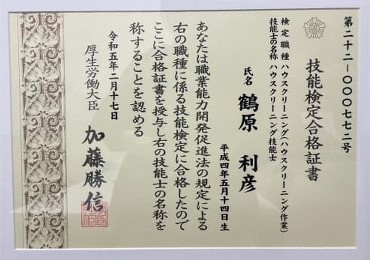 第二十二-〇〇〇七七二号
技能検定合格証書
検定職種 ハウスクリーニング(ハウスクリーニング作業)
技能士の名称 ハウスクリーニング技能士
氏名 鶴原 利彦
平成四年五月十四日生
あなたは職業能力開発促進法の規定による
右の職種に係る技能検定に合格したので
ここに合格証書を授与し右の技能士の名称を
称することを認める
令和五年二月十七日
厚生労働大臣 加藤勝信